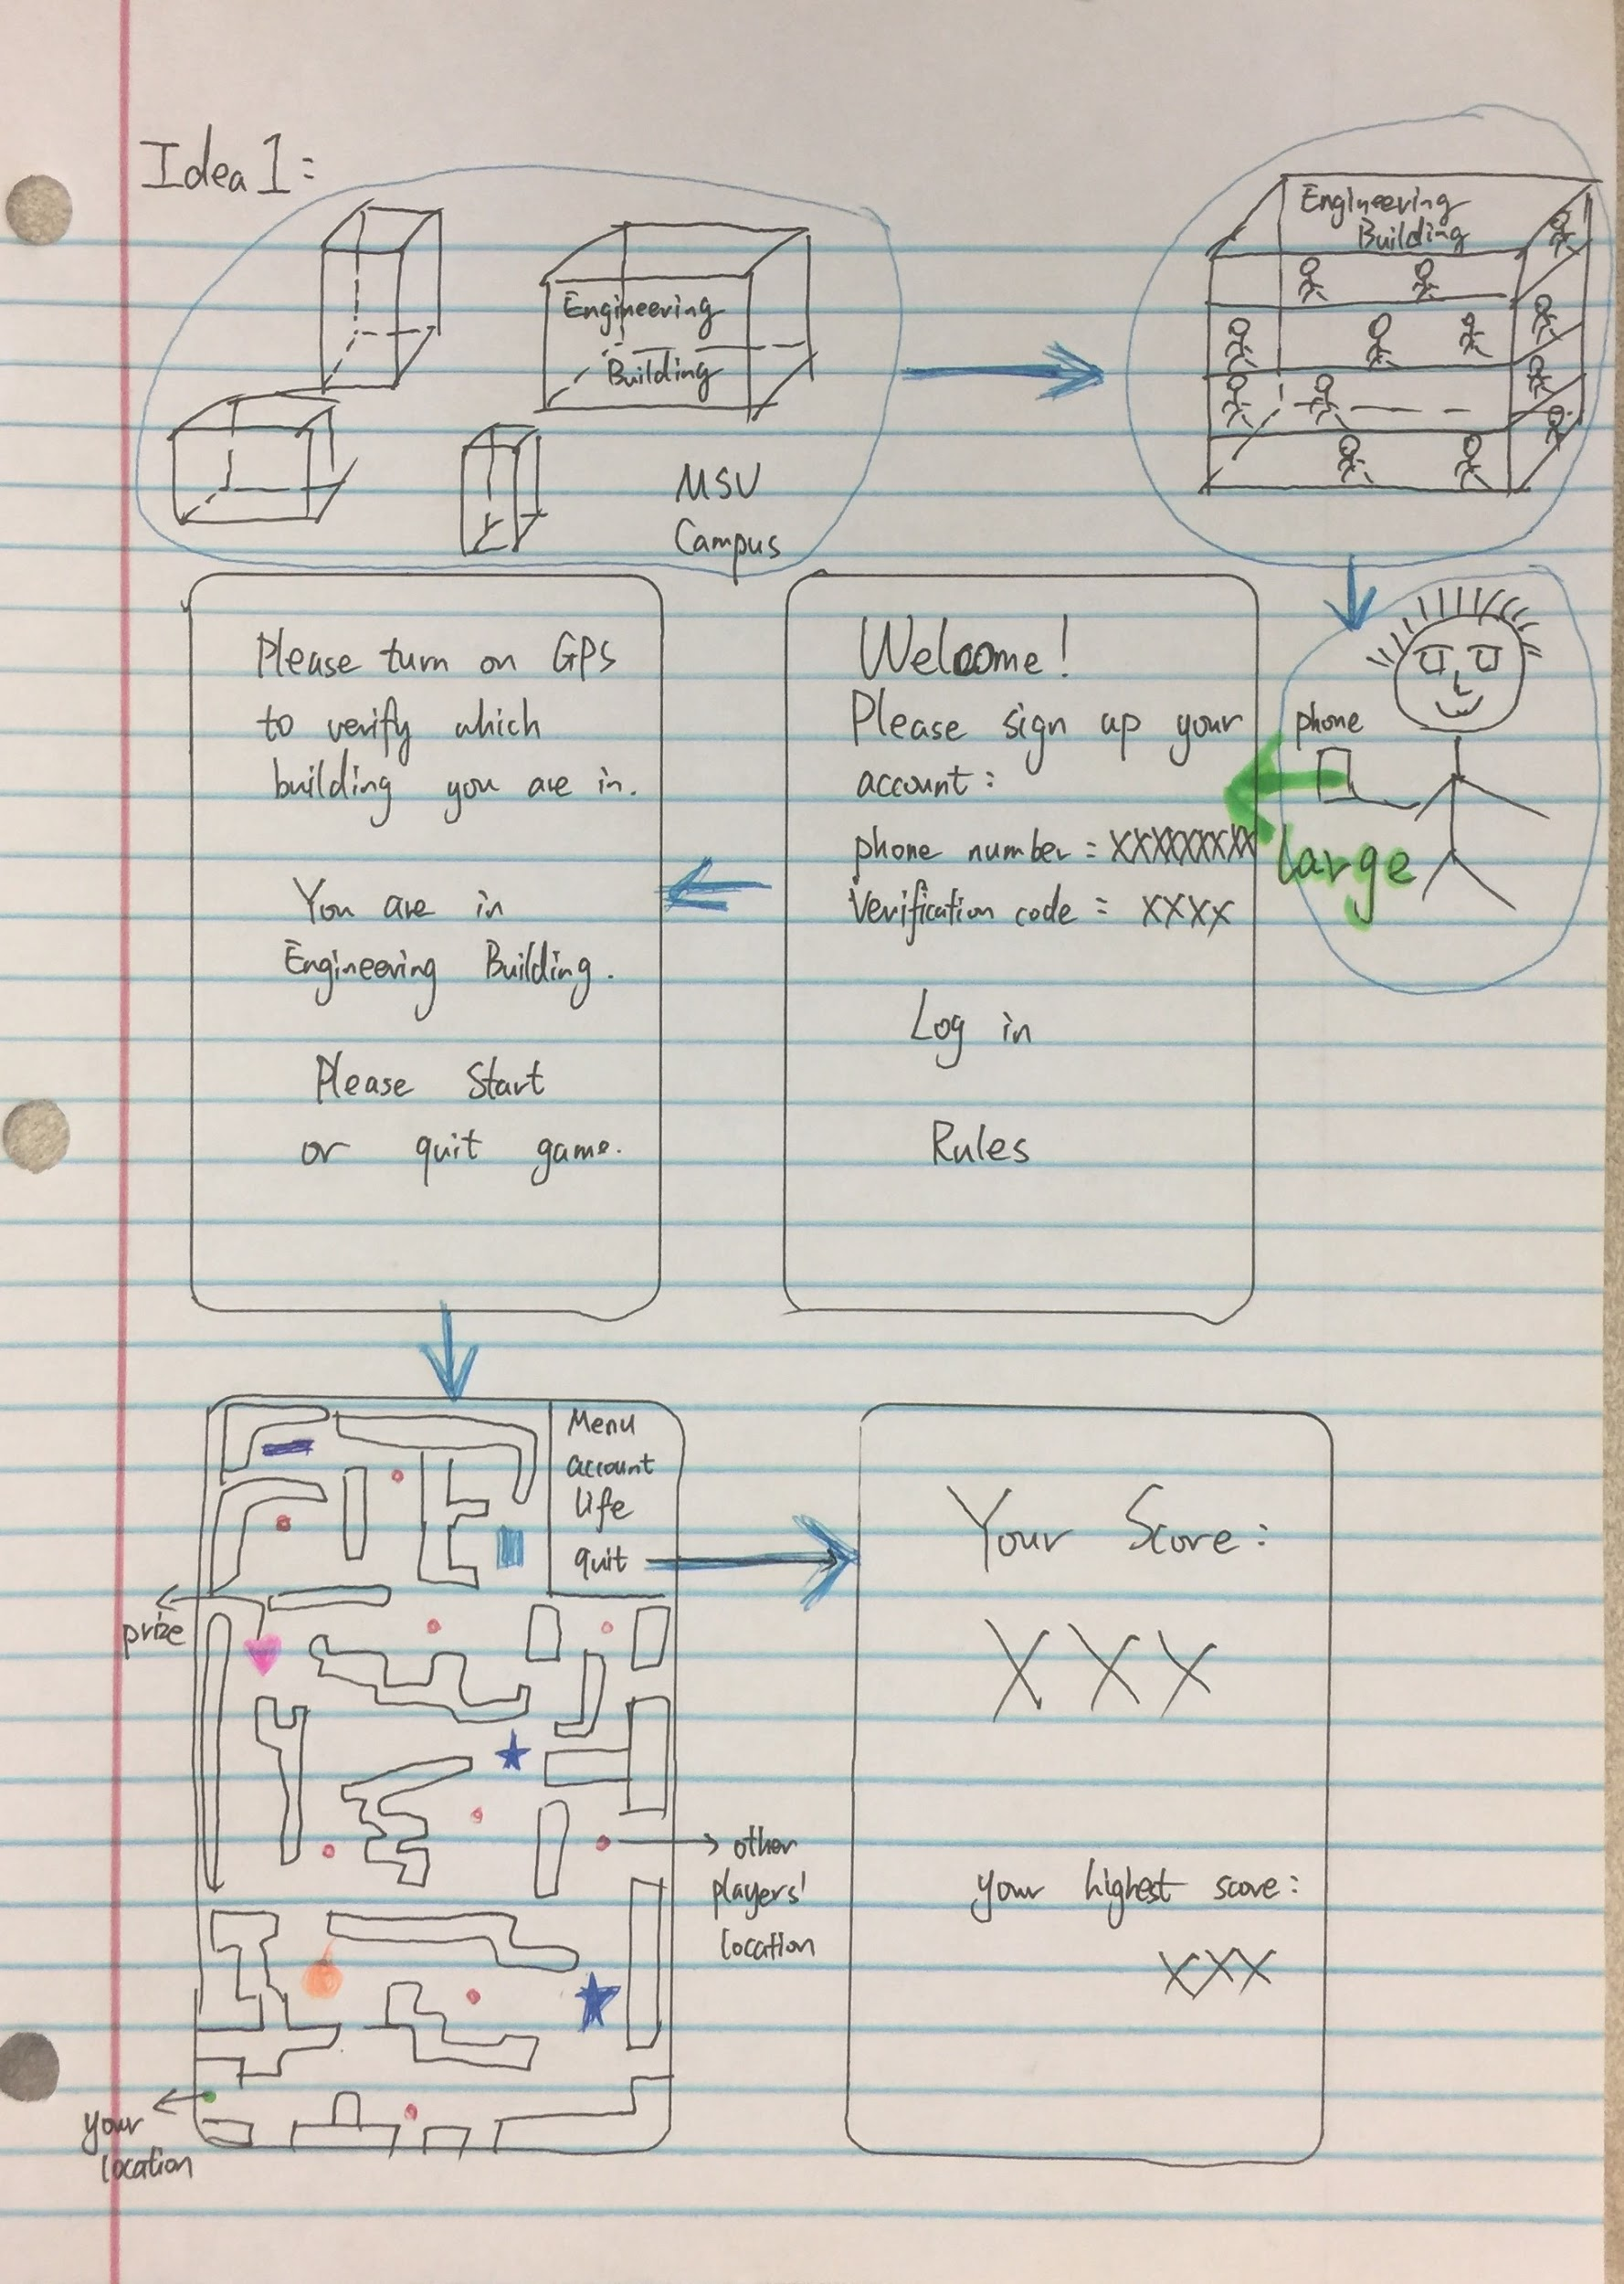 Idea 1:
Engineering
Building
MSU
Campus
Engineering
Building
phone
large
Welcome!
Please sign up your
account:
phone number = XXXXXXXX
Verification code = XXXX
Log in
Rules
Please turn on GPS
to verify which
building you are in.
You are in
Engineering Building.
Please Start
or quit game.
Menu
account
life
quit
prize
other
players'
location
your
location
Your Score:
XXX
your highest score:
XXX